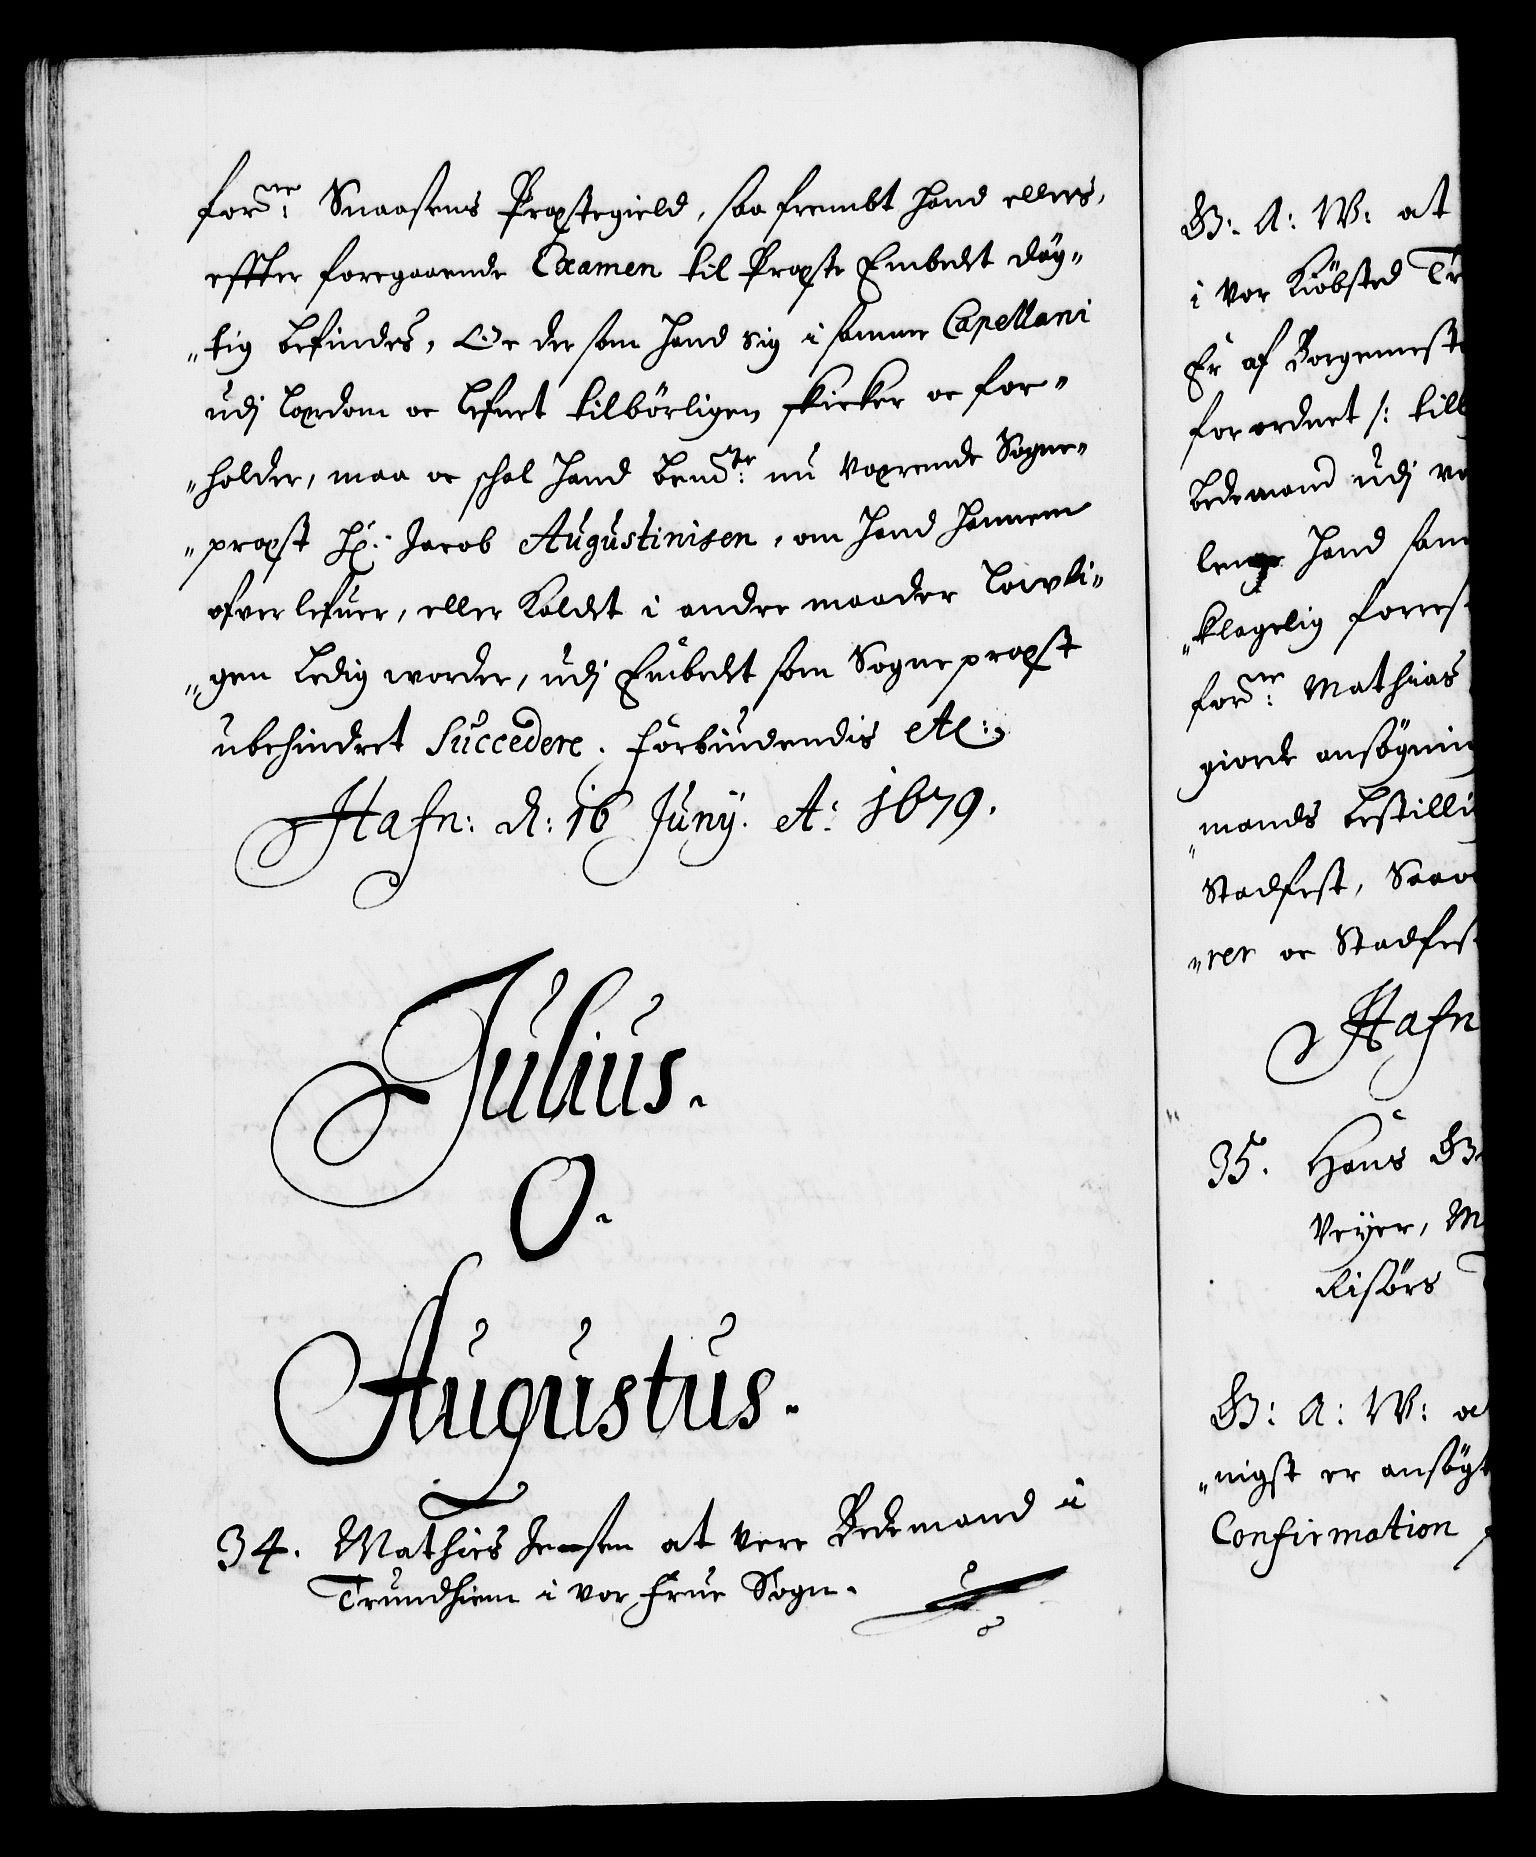 forne: Snaasens Præstegield, saa frembt hand ellers,
effter foregaaende Examen til Præste Embedet dyg„
„tig befindes, Oc der som hand sig i samme Capellani
udj Lærdom oc lefnet tilbörligen skicker oc for„
„holder, maa oc schal hand bemte: nu værende Sogne„
„præst Hr: Jacob Augustinisen, om hand hannem
ofver lefuer, eller Kaldet i andre maader Lowli„
„gen Ledig worder, udj Embedet som Sogne præst
ubehindret Succedere. Forbiudendis etc:
Hafn: d: 16 Junÿ. Ao: 1679.
Julius.
0.
Augustus.
34. Mathies Jensen at vere Bedemand i
Trundhiem i vor Frue Sogn.
G: A: W: at
i vor Kiöbsted Tr
Er af Borgemeste
forordnet /: till
bedemand udj vo
lenge hand sam
„klagelig forres
forne: Mathias
giorde ansögning
„mands bestilli
Stadfest, Saa
„rer oc Stadfes
Hafn
35. Hans
Veyer, M
Risörs
G: A: W: a
„nigst er ansögt
Confirmation